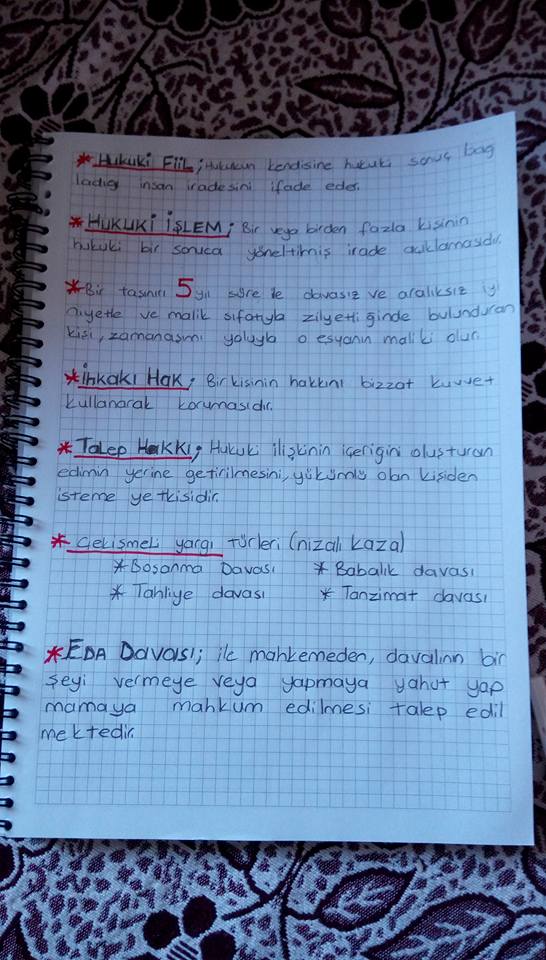 * HUKUKİ FİİL; Hukukun kendisine hukuki sonuç bağ
ladığı insan iradesini ifade eder.
* HUKUKİ İŞLEM; Bir veya birden fazla kişinin
hukuki bir sonuca yöneltilmiş irade açıklamasıdır.
* Bir taşınırı 5 yıl süre ile davasız ve aralıksız iyi
niyetle ve malik sıfatıyla zilyetliğinde bulunduran
kişi, zamanaşımı yoluyla o eşyanın maliki olur.
* İhkakı Hak; Bir kişinin hakkını bizzat kuvvet
kullanarak korumasıdır.
* Talep Hakkı; Hukuki ilişkinin içeriğini oluşturan
edimin yerine getirilmesini, yükümlü olan kişiden
isteme yetkisidir.
* Çekişmeli yargı türleri (nizalı kaza)
* Boşanma Davası * Babalık davası
* Tahliye davası * Tanzimat davası
* EDA DAVASI; ile mahkemeden, davalının bir
şeyi vermeye veya yapmaya yahut yap
mamaya mahkum edilmesi talep edil
mektedir.